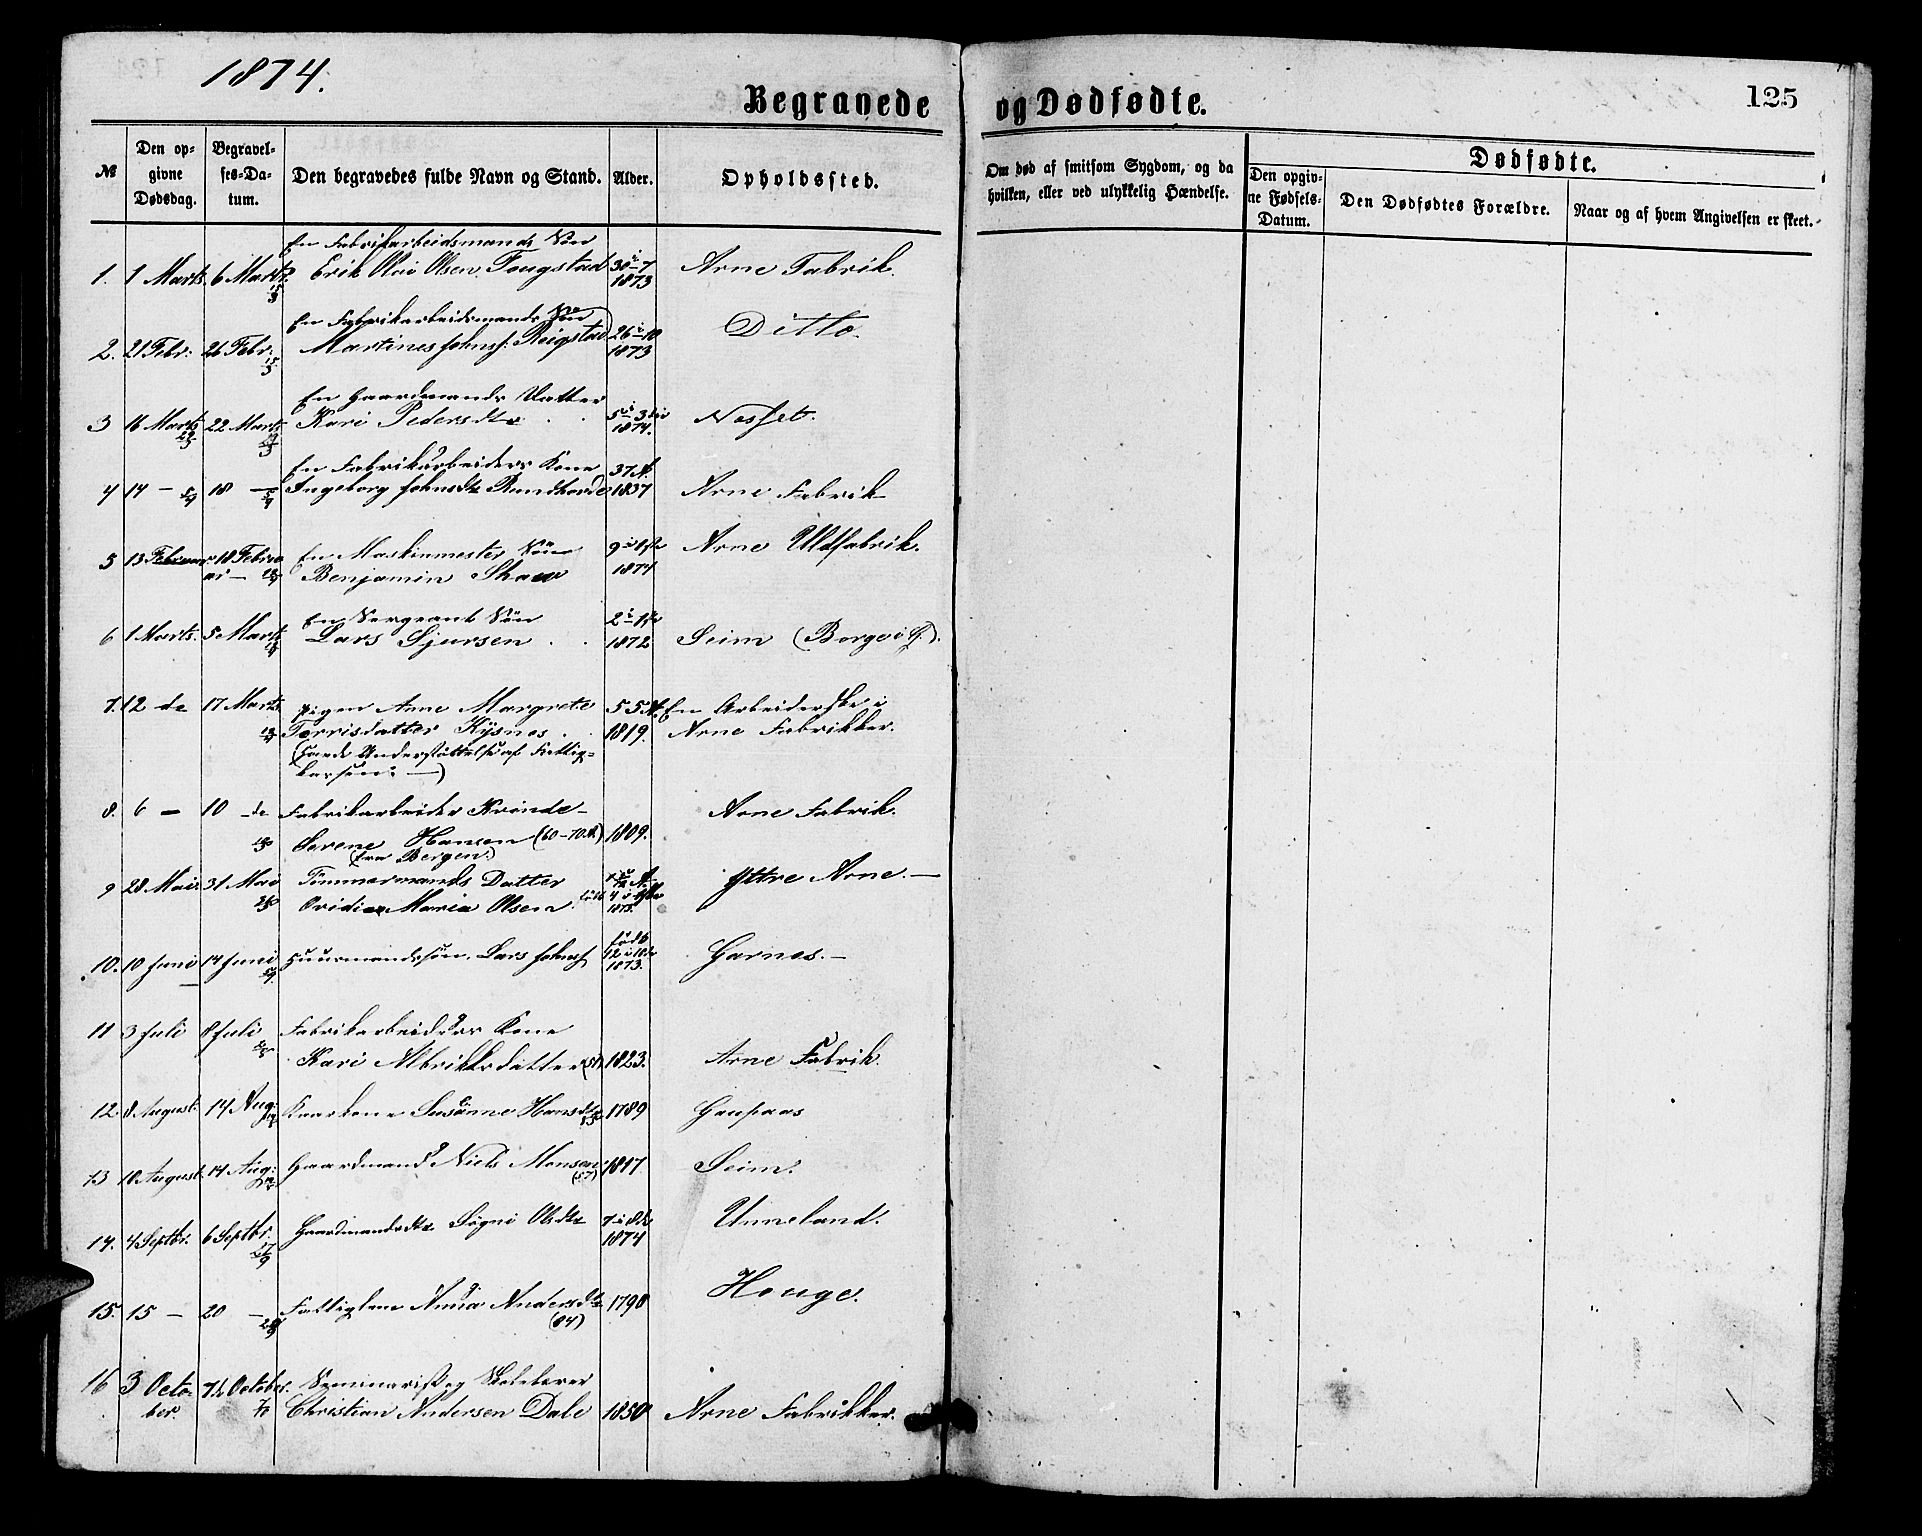 1874.
Begravede og Dødfødte.
125
№
Den opgivne Dødsdag.
Begravelses-Datum.
Den begravedes fulde Navn og Stand.
Alder.
Opholdssted.
Om død af smitsom Sygdom, og da hvilken, eller ved ulykkelig Hændelse.
Dødfødte.
Den opgivne Fødsels-Datum.
Den Dødfødtes Forældre.
Naar og af hvem Angivelsen er skeet.
En Fabrikarbeidsmands Søn
1. 1 Marts. 6 Marts Erik Olai Olsen Tougstad 30-7 1873 Arne Fabrik.
En Fabrikarbeidsmands Søn
2. 21 Febr: 26 Febr. Martines Johns: Reigstad 26-10 1873 Ditto.
En Gaardmands Datter
3 16 Marts 22 Marts Kari Pedersdtr 5 i 3die 1874. Nesset.
En Fabrikarbeiders Kone 37 A.
4 14 — 18 — Ingeborg Johnsdtr Rundhovde 1837 Arne Fabrik
5 13 Februar 18 Februar En Maskinmester Søn 9 i 1ste Arne Uldfabrik.
Benjamin Shaw 1874
En Sergeant Søn 2 i 1ste
6 1 Marts. 5 Marts Lars Sjursen 1872 Seim (Borgvi G.).
7. 12 de 17 Marts pigen Anne Margrete 55 A. En Arbeiderske i
Torrisdatter Kysnes 1819. Arne Fabrikker.
(havde Understøttelse af Fattig-
kassen. —)
8. 6 — 10 de Fabrikarbeider Kvinde Arne Fabrik.
Serene Hansen (60-70 A.) 1809.
(fra Bergen.)
9 28 Mai 31 Mai Tømmermands Datter Yttre Arne. —
Ovidia Maria Olsen. født 4 1873.
10. 10 Juni 14 Juni Huusmandssøn. Lars Johns født 12 i 10de 1873. Garnes. —
11 3 Juli 8 Juli Fabrikarbeiders Kone
Kari Albrikksdatter (51) 1823. Arne Fabrik.
12. 8 August. 14 Aug: Kaarkone Susanne Hansdtr 85 1789 Gaupaas
13 10 August. 14 Aug: Gaardmand Niels Monsen (57) 1817. Seim.
14. 4 Septbr. 6 Septbr. Gaardmandsdtr Signi Olsdtr 7 i 8de 1874 Unneland.
15. 15 — 20 — Fattiglem Anna Andersdtr (84) 1790 Houge.
16 3 October. 7de October. Seminarist og Skolelærer
Christian Andersen Dale 1850 Arne Fabrikker.